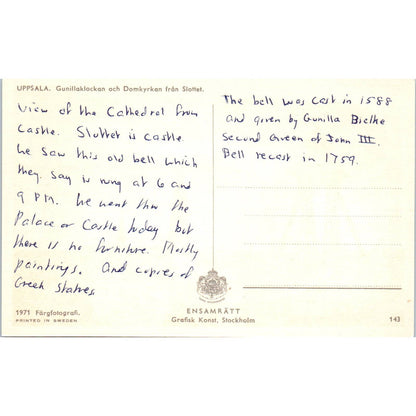 UPPSALA. Gunillaklockan och Domkyrkan från Slottet.
View of the Cathedral from
Castle. Slottet is castle
he saw this old bell which
they say is rung at 6 and
9 P.M. he went thru the
Palace or Castle today but
there is no furniture. Mostly
paintings. And copies of
Greek statues
The bell was cast in 1588
and given by Gunilla Bielke
Second Queen of John III.
Bell recast in 1759.
1971 Färgfotografi.
PRINTED IN SWEDEN
ENSAMRÄTT
Grafisk Konst, Stockholm
143